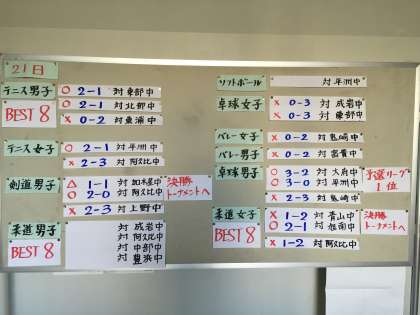 21日
テニス男子
○ 2-1 対東部中
○ 2-1 対北部中
× 0-2 対東浦中
BEST 8
テニス女子
○ 2-1 対平洲中
× 2-3 対阿久比中
剣道男子
△ 1-1 対加木屋中
○ 2-0 対阿久比中
× 2-3 対上野中
決勝
トーナメントへ
柔道男子
BEST 8
対成岩中
対阿久比中
対中部中
対豊浜中
ソフトボール
対平洲中
卓球女子
× 0-3 対成岩中
× 0-3 対東部中
バレー女子
× 0-2 対鬼崎中
バレー男子
× 0-2 対富貴中
卓球男子
○ 3-2 対大府中
○ 3-0 対平洲中
× 2-3 対鬼崎中
予選リーグ
1位
柔道女子
BEST 8
× 1-2 対青山中
○ 2-1 対旭南中
× 1-2 対阿久比中
決勝
トーナメントへ